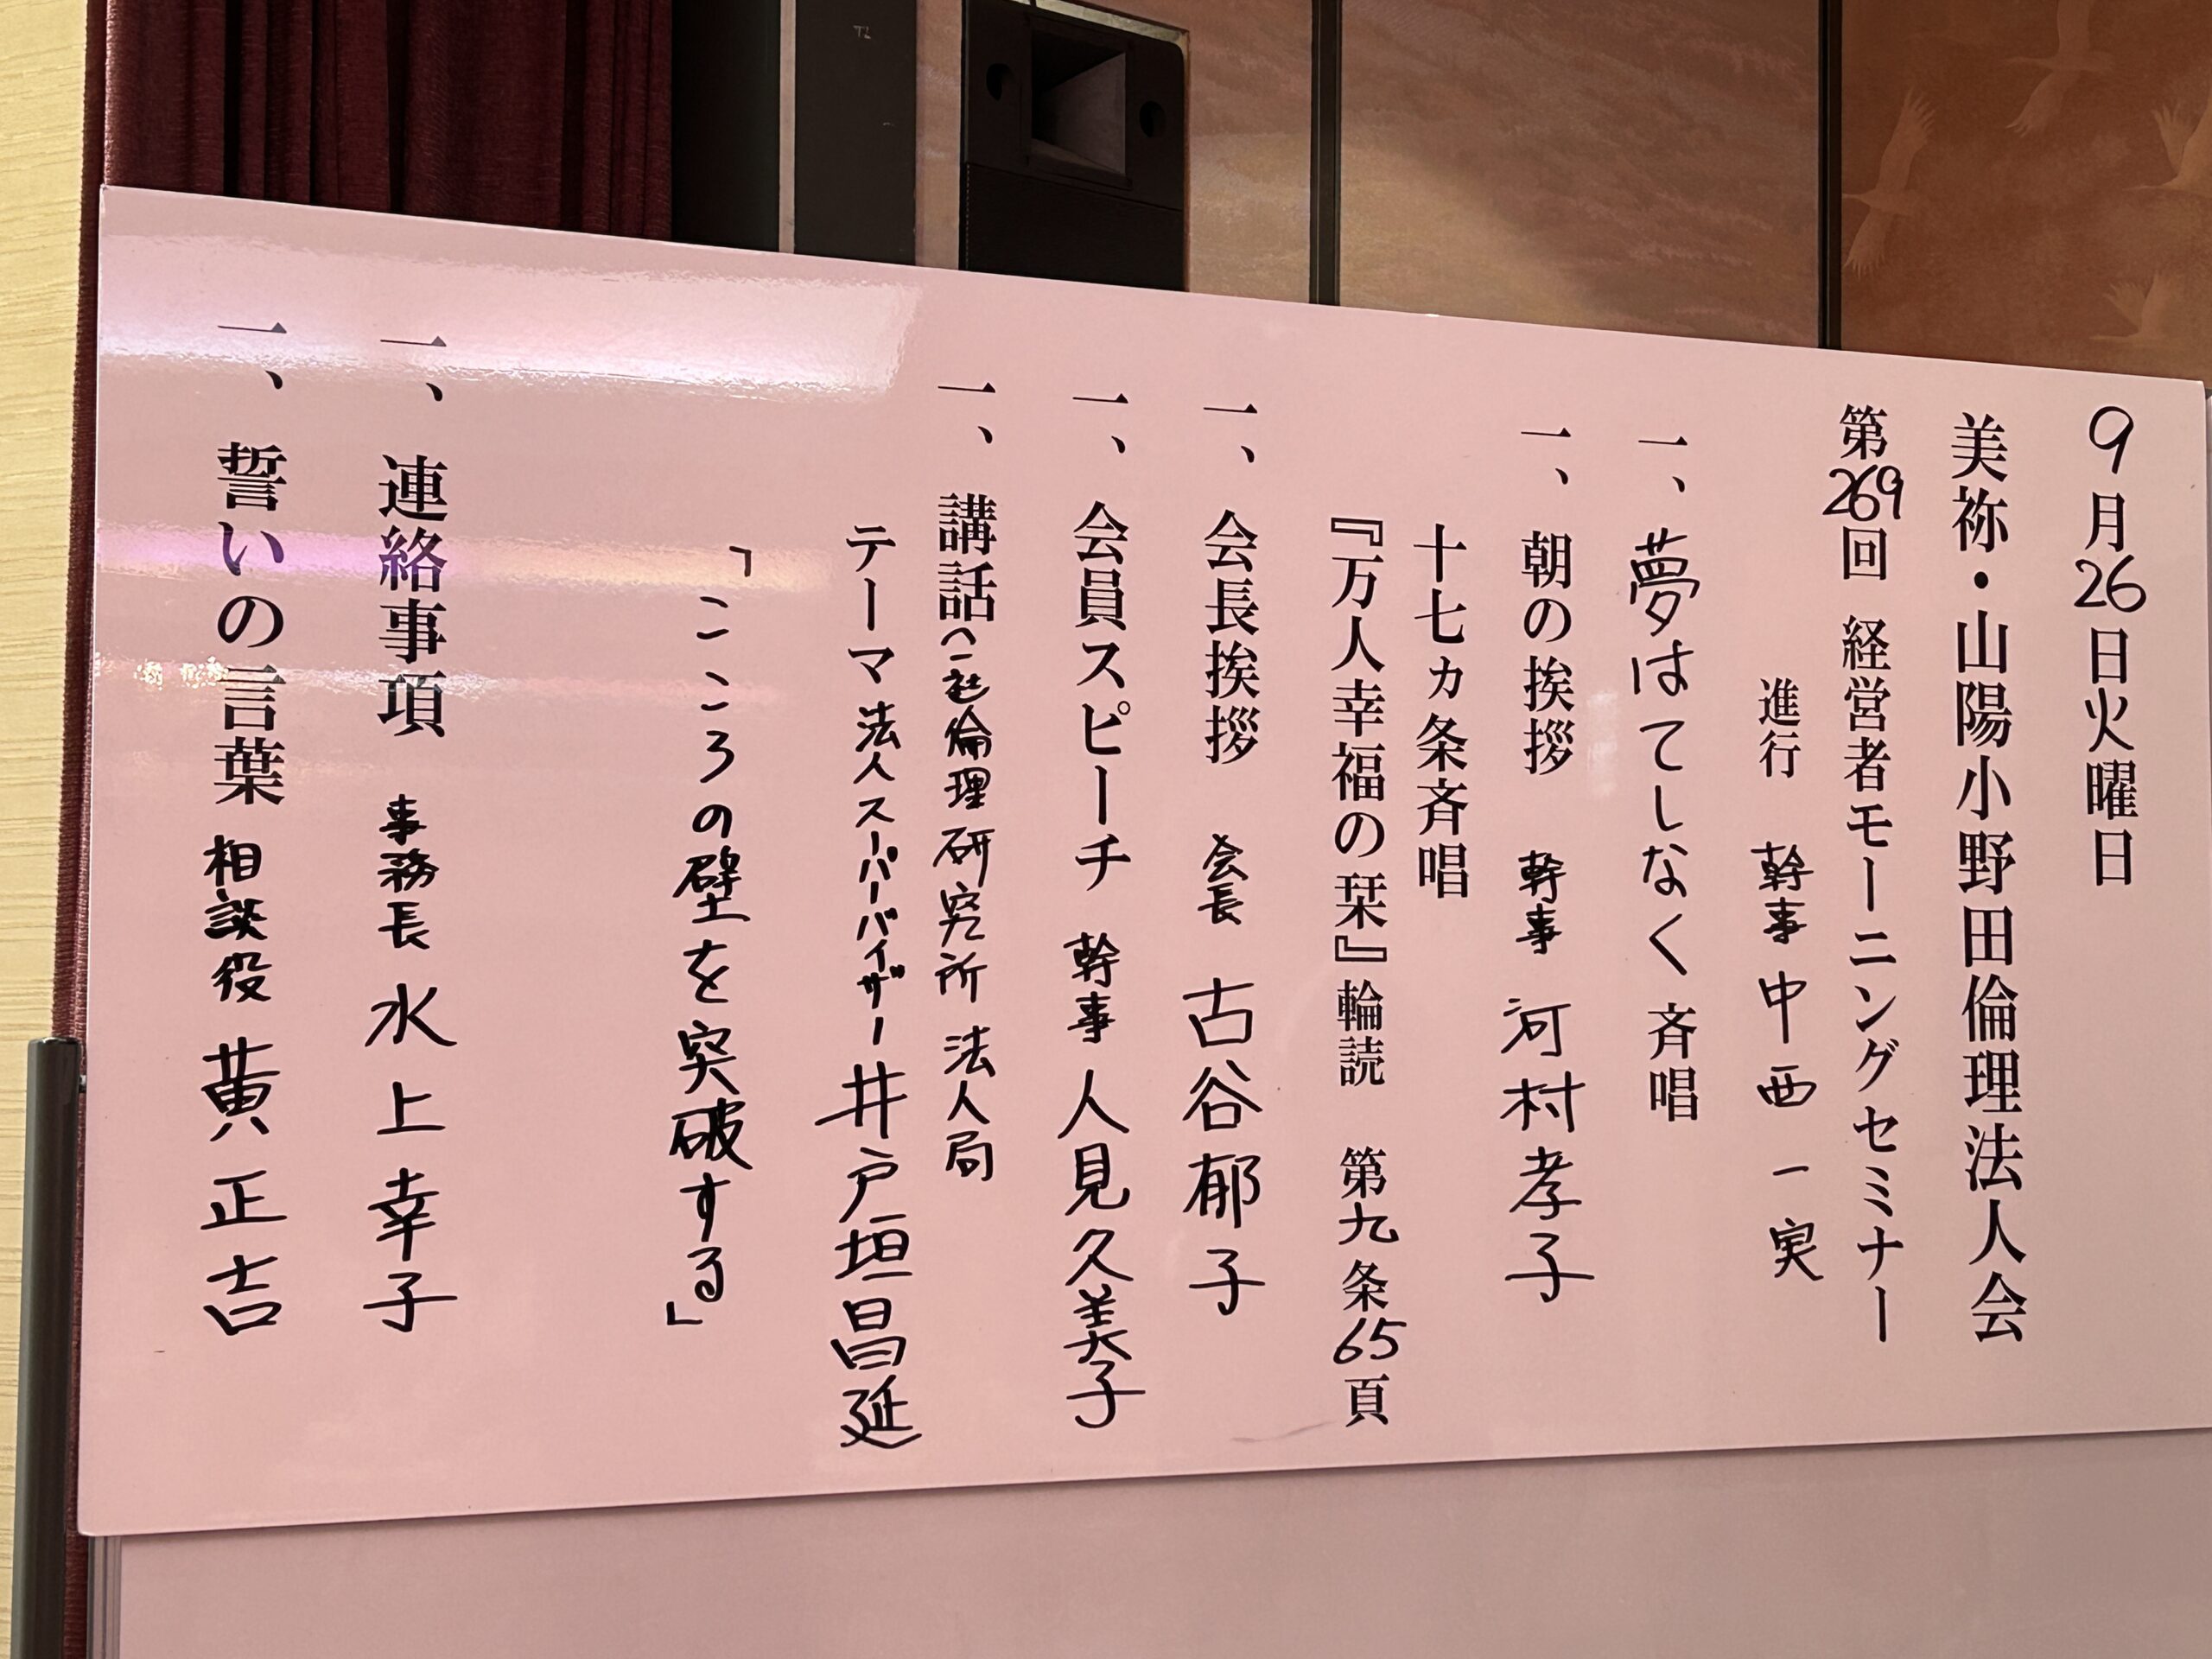 9月26日火曜日
美祢・山陽小野田倫理法人会
第269回 経営者モーニングセミナー
進行 幹事 中西一実
一、夢はてしなく 斉唱
一、朝の挨拶 幹事 河村孝子
十七ヵ条斉唱
『万人幸福の栞』輪読 第九条65頁
一、会長挨拶 会長 古谷郁子
一、会員スピーチ 幹事 人見久美子
一、講話(一社)倫理研究所 法人局
テーマ 法人スーパーバイザー 井戸垣昌延
「こころの壁を突破する」
一、連絡事項 事務長 水上幸子
一、誓いの言葉 相談役 黄正吉